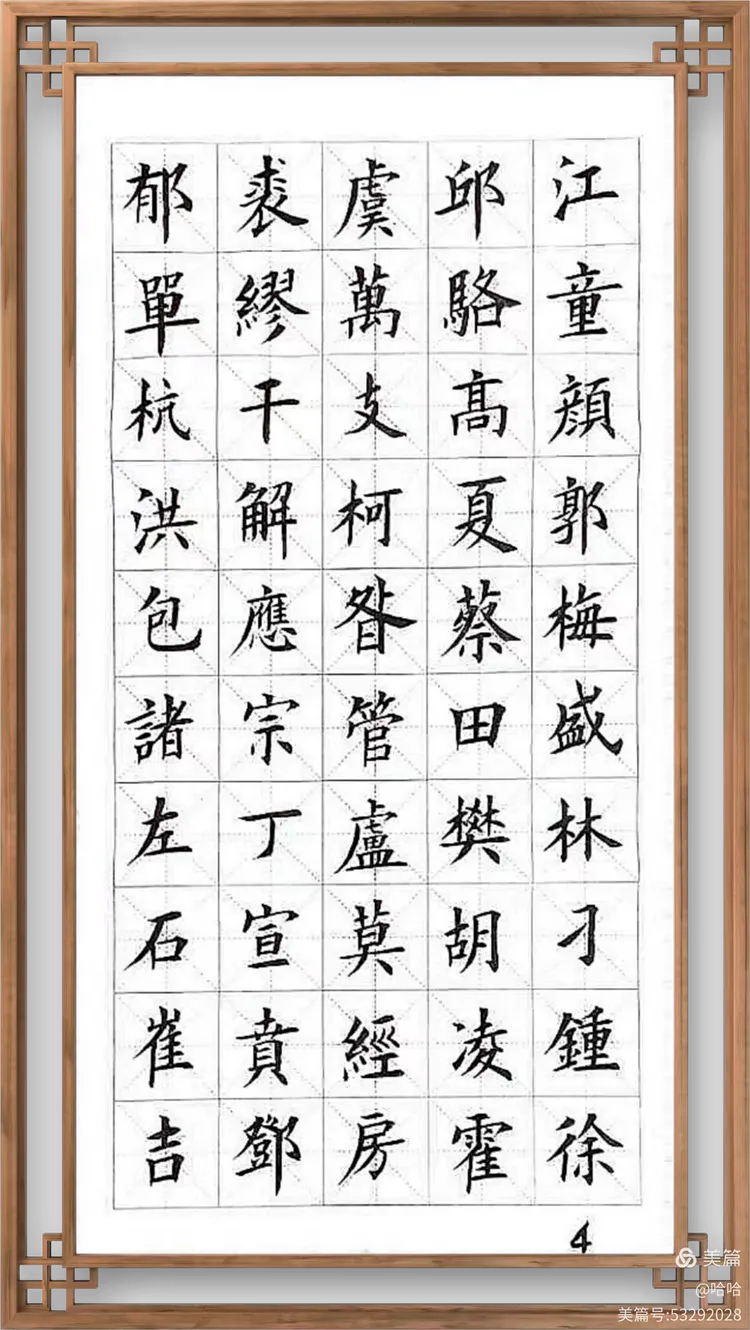 江童顏郭梅盛林刁鍾徐
邱駱高夏蔡田樊胡凌霍
虞萬支柯昝管盧莫經房
裘繆干解應宗丁宣賁鄧
郁單杭洪包諸左石崔吉
4
美篇
@哈哈
美篇号:53292028